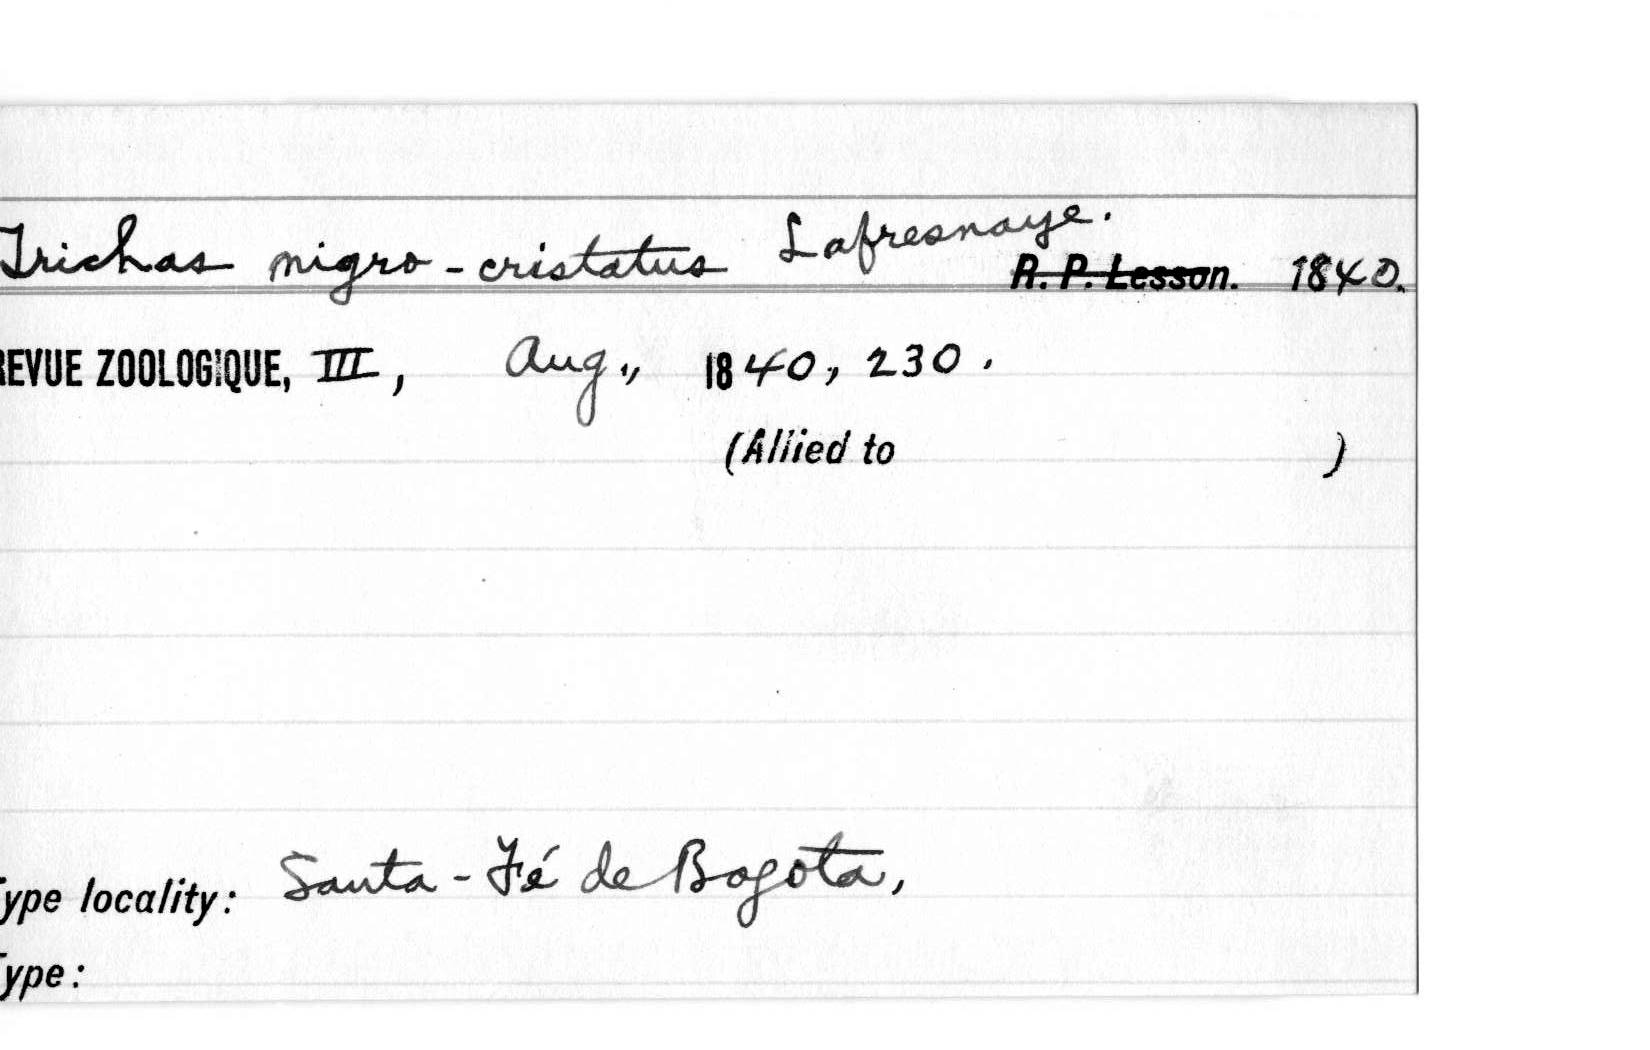 Trichas nigro-cristatus Lafresnaye.
R. P. Lesson. 1840.
REVUE ZOOLOGIQUE, III, Aug., 1840, 230.
(Allied to )
Type locality: Santa-Fé de Bogota,
Type: